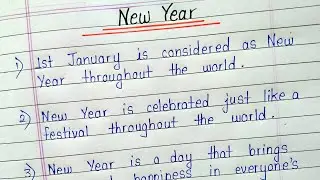 New Year
1) 1st January is considered as New
Year throughout the world.
2) New Year is celebrated just like a
festival throughout the world.
3) New Year is a day that brings
happiness in everyone's